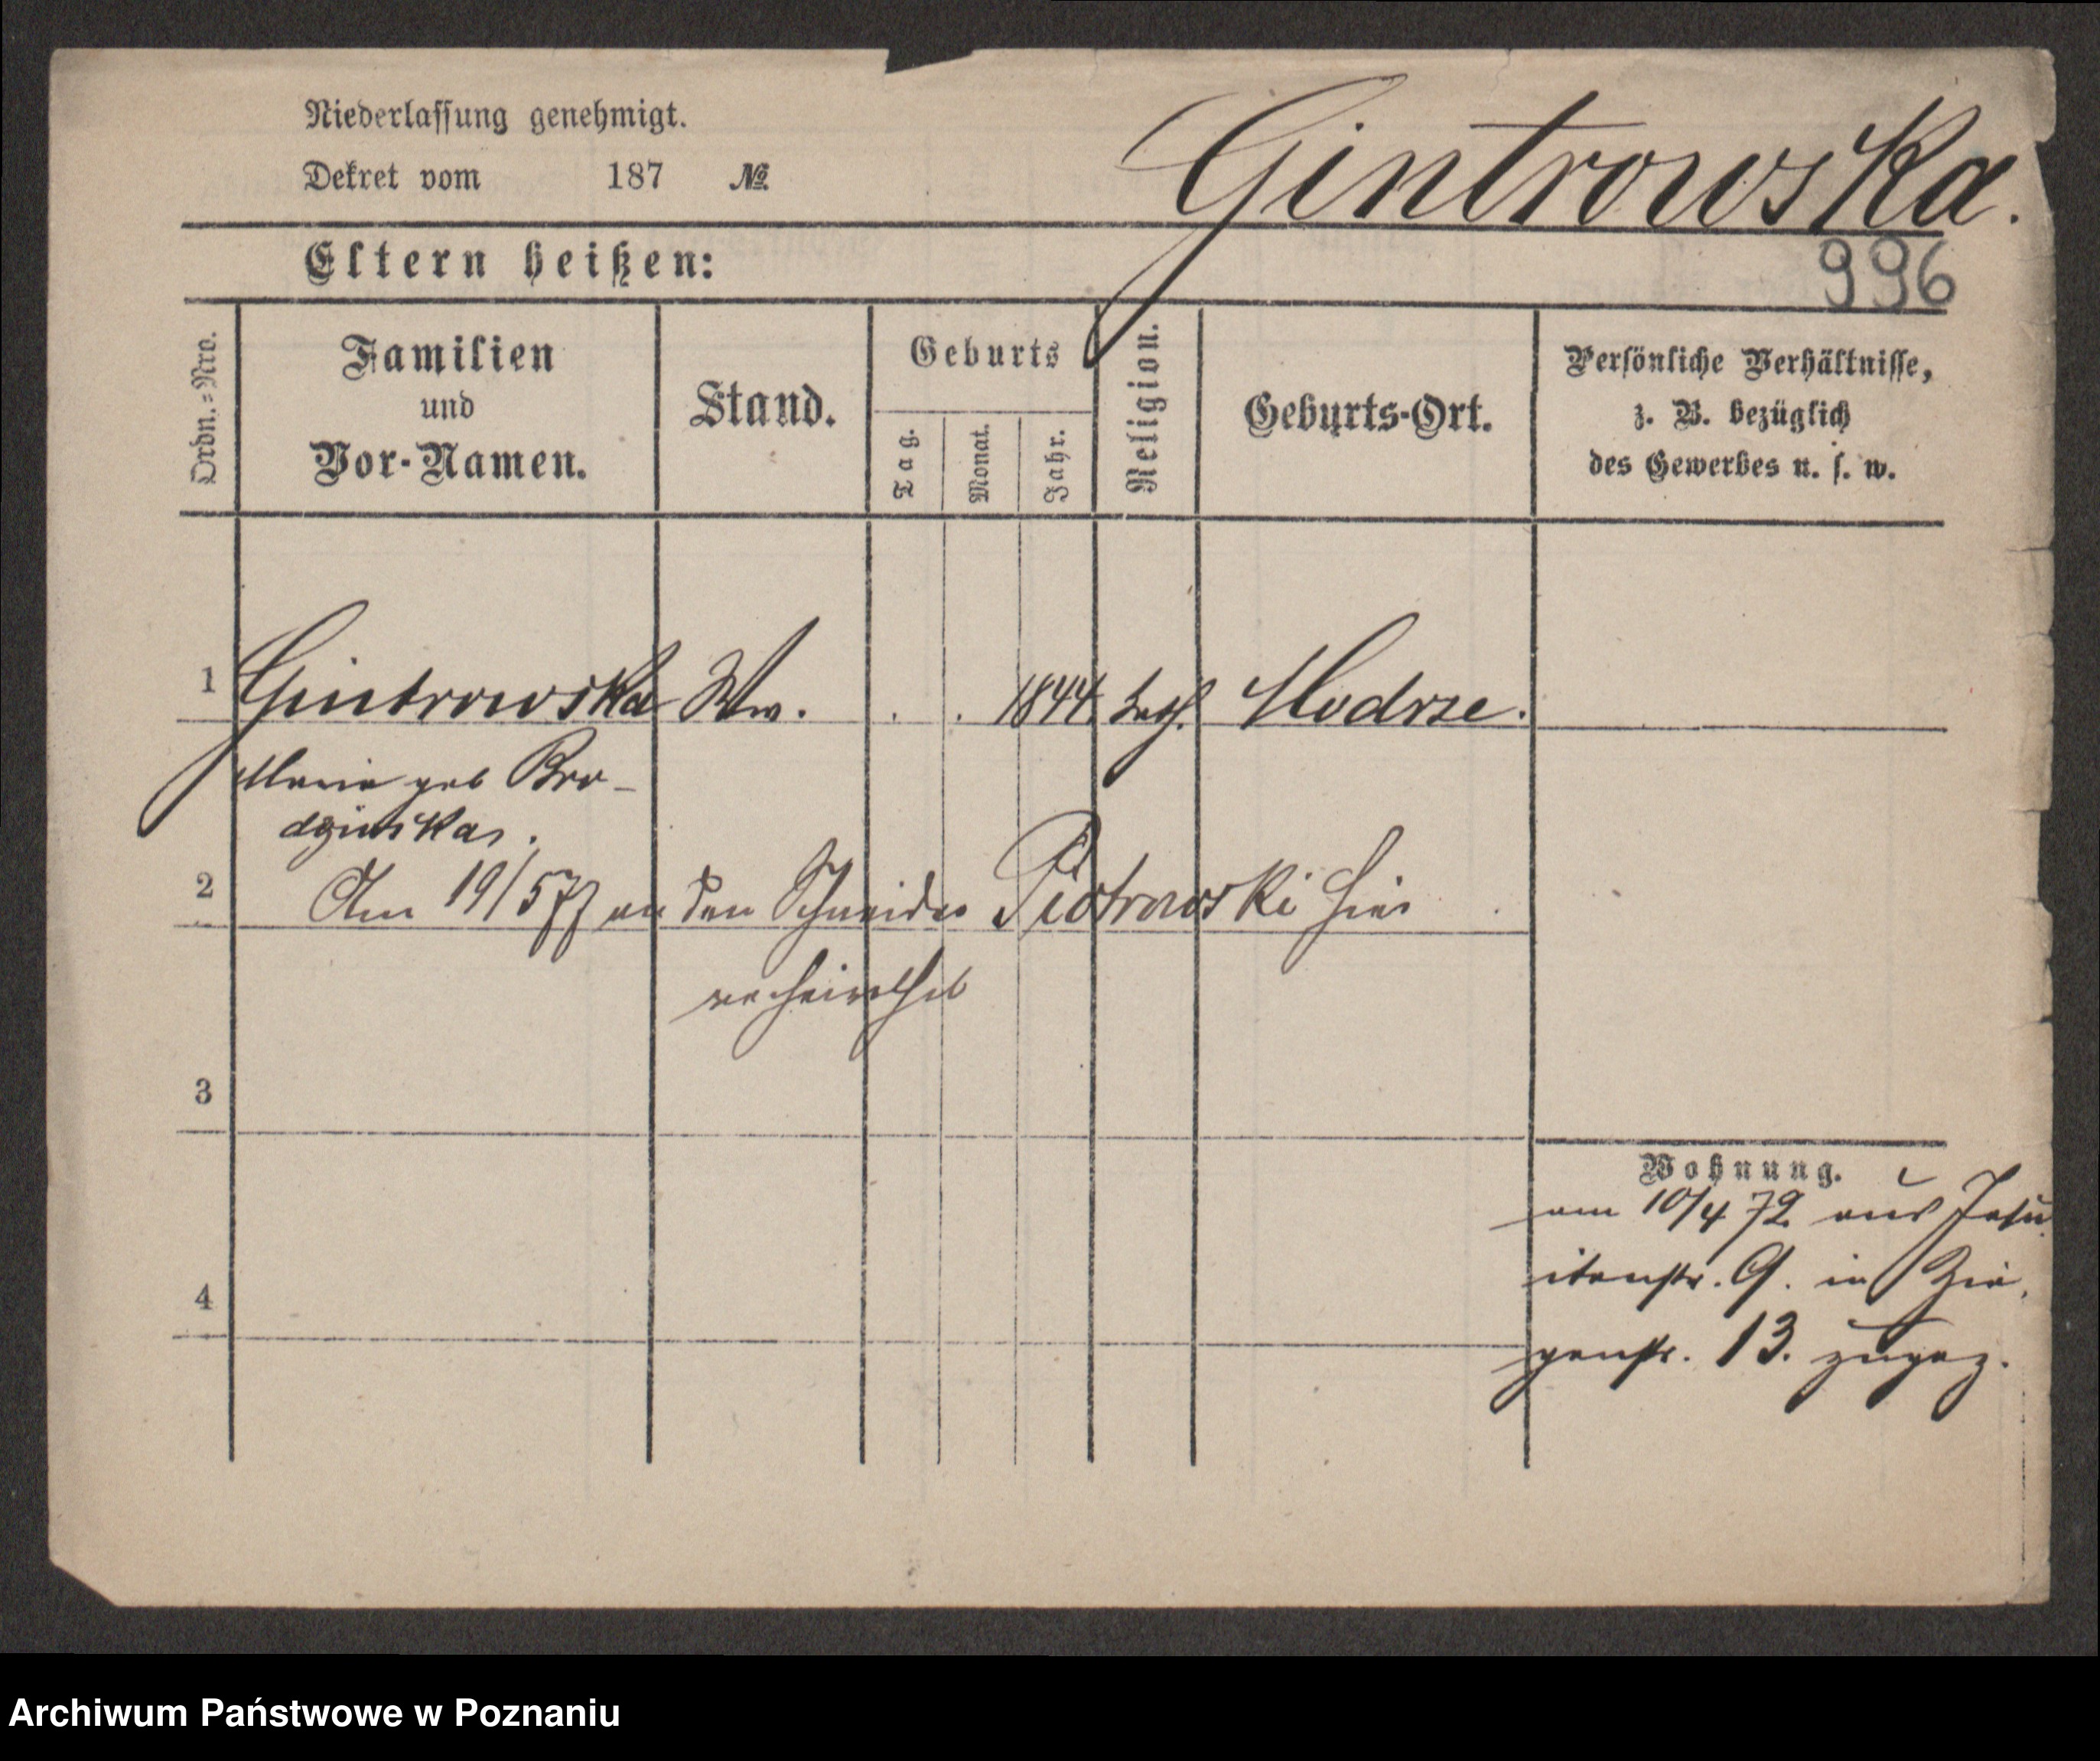 Niederlassung genehmigt.
Dekret vom 187 №
Gintrowska.
996
Eltern heißen:
Ordn.=Nro.
Familien
und
Vor-Namen.
Stand.
Geburts
Tag.
Monat.
Jahr.
Religion.
Geburts-Ort.
Persönliche Verhältnisse,
z. B. bezüglich
des Gewerbes u. s. w.
1 Gintrowska Ww. . . 1844 kath. Modrze.
Marie geb Bro-
dzinska.
2 Am 19/5 77 an den Schneider Piotrowski hier
verheirathet
3
Wohnung.
am 10/4 72 aus Jesu
itenstr. 9. in Zie,
genstr. 13. zugez.
4
Archiwum Państwowe w Poznaniu